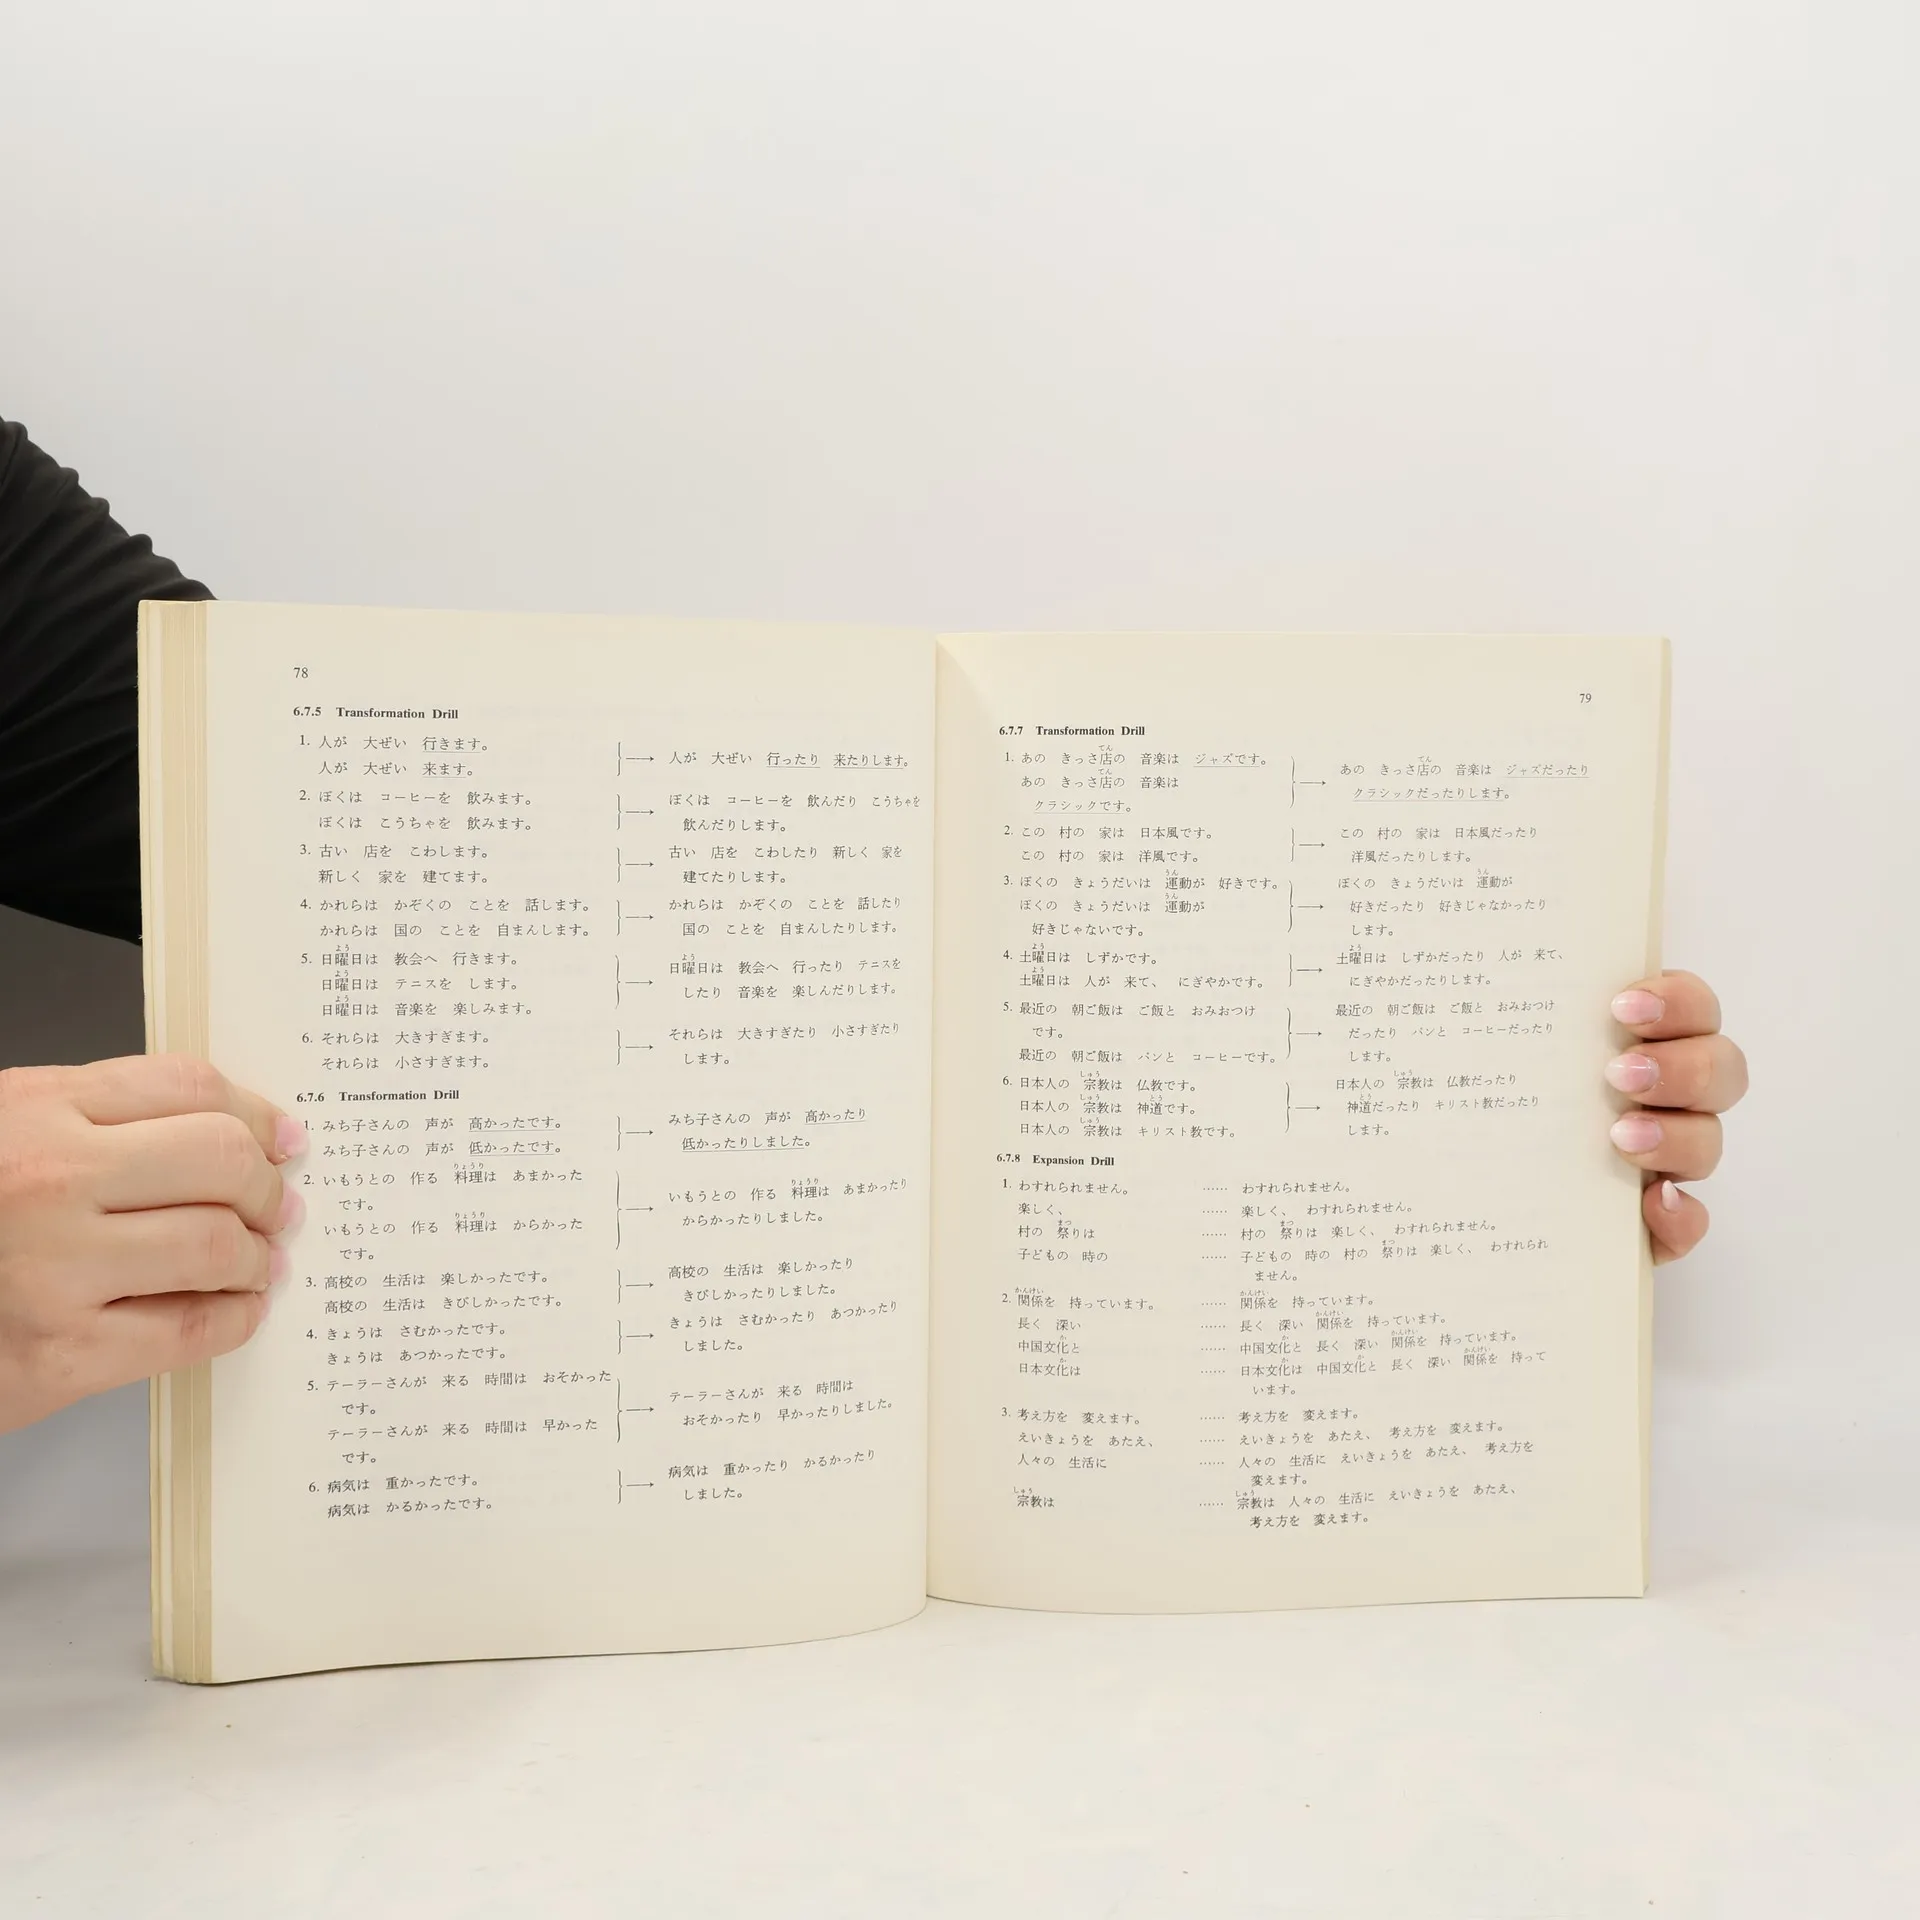 78
6.7.5 Transformation Drill
1. 人が 大ぜい 行きます。
人が 大ぜい 来ます。
人が 大ぜい 行ったり 来たりします。
2. ぼくは コーヒーを 飲みます。
ぼくは こうちゃを 飲みます。
ぼくは コーヒーを 飲んだり こうちゃを
飲んだりします。
3. 古い 店を こわします。
新しく 家を 建てます。
古い 店を こわしたり 新しく 家を
建てたりします。
4. かれらは かぞくの ことを 話します。
かれらは 国の ことを 自まんします。
かれらは かぞくの ことを 話したり
国の ことを 自まんしたりします。
5. 日曜日は 教会へ 行きます。
日曜日は テニスを します。
日曜日は 音楽を 楽しみます。
日曜日は 教会へ 行ったり テニスを
したり 音楽を 楽しんだりします。
6. それらは 大きすぎます。
それらは 小さすぎます。
それらは 大きすぎたり 小さすぎたり
します。
6.7.6 Transformation Drill
1. みち子さんの 声が 高かったです。
みち子さんの 声が 低かったです。
みち子さんの 声が 高かったり
低かったりしました。
2. いもうとの 作る 料理は あまかった
です。
いもうとの 作る 料理は からかった
です。
いもうとの 作る 料理は あまかったり
からかったりしました。
3. 高校の 生活は 楽しかったです。
高校の 生活は きびしかったです。
高校の 生活は 楽しかったり
きびしかったりしました。
4. きょうは さむかったです。
きょうは あつかったです。
きょうは さむかったり あつかったり
しました。
5. テーラーさんが 来る 時間は おそかった
です。
テーラーさんが 来る 時間は 早かった
です。
テーラーさんが 来る 時間は
おそかったり 早かったりしました。
6. 病気は 重かったです。
病気は かるかったです。
病気は 重かったり かるかったり
しました。
79
6.7.7 Transformation Drill
1. あの きっさ店の 音楽は ジャズです。
あの きっさ店の 音楽は
クラシックです。
あの きっさ店の 音楽は ジャズだったり
クラシックだったりします。
2. この 村の 家は 日本風です。
この 村の 家は 洋風です。
この 村の 家は 日本風だったり
洋風だったりします。
3. ぼくの きょうだいは 運動が 好きです。
ぼくの きょうだいは 運動が
好きじゃないです。
ぼくの きょうだいは 運動が
好きだったり 好きじゃなかったり
します。
4. 土曜日は しずかです。
土曜日は 人が 来て、 にぎやかです。
土曜日は しずかだったり 人が 来て、
にぎやかだったりします。
5. 最近の 朝ご飯は ご飯と おみおつけ
です。
最近の 朝ご飯は パンと コーヒーです。
最近の 朝ご飯は ご飯と おみおつけ
だったり パンと コーヒーだったり
します。
6. 日本人の 宗教は 仏教です。
日本人の 宗教は 神道です。
日本人の 宗教は キリスト教です。
日本人の 宗教は 仏教だったり
神道だったり キリスト教だったり
します。
6.7.8 Expansion Drill
1. わすれられません。 …… わすれられません。
楽しく、 …… 楽しく、 わすれられません。
村の 祭りは …… 村の 祭りは 楽しく、 わすれられません。
子どもの 時の …… 子どもの 時の 村の 祭りは 楽しく、 わすれられ
ません。
2. 関係を 持っています。 …… 関係を 持っています。
長く 深い …… 長く 深い 関係を 持っています。
中国文化と …… 中国文化と 長く 深い 関係を 持っています。
日本文化は …… 日本文化は 中国文化と 長く 深い 関係を 持って
います。
3. 考え方を 変えます。 …… 考え方を 変えます。
えいきょうを あたえ、 …… えいきょうを あたえ、 考え方を 変えます。
人々の 生活に …… 人々の 生活に えいきょうを あたえ、 考え方を
変えます。
宗教は …… 宗教は 人々の 生活に えいきょうを あたえ、
考え方を 変えます。